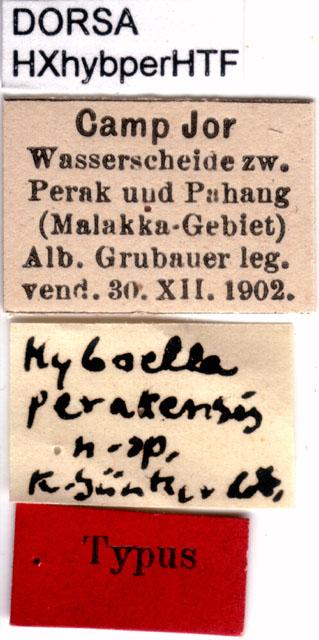 DORSA
HXhybperHTF
Camp Jor
Wasserscheide zw.
Perak und Pahang
(Malakka-Gebiet)
Alb. Grubauer leg.
vend. 30. XII. 1902.
Hyboella
perakensis
n. sp.
K. Günther det.
Typus